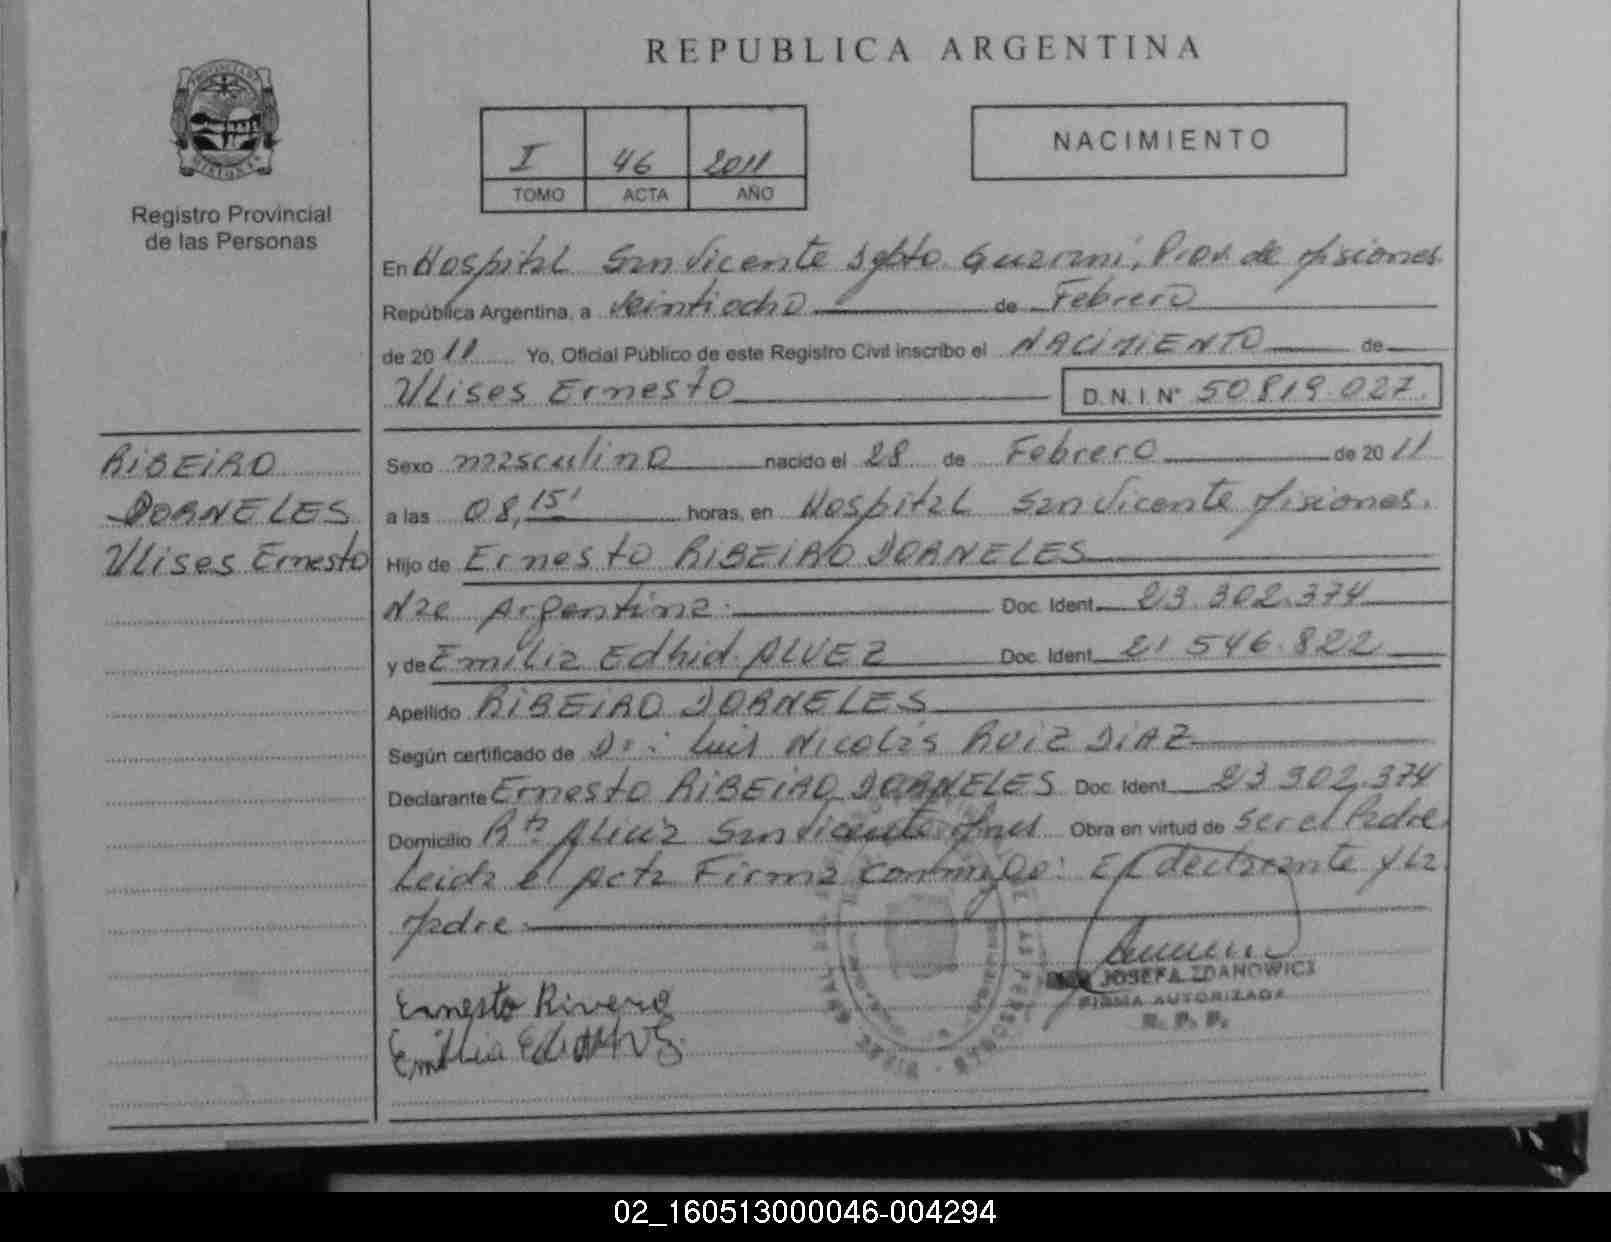 REPUBLICA ARGENTINA
I 46 2011
TOMO ACTA AÑO
NACIMIENTO
Registro Provincial
de las Personas
En Hospital San Vicente Dpto. Guarani, Prov. de Misiones.
República Argentina, a Veintiocho de Febrero
de 2011 Yo, Oficial Público de este Registro Civil inscribo el NACIMIENTO de
Ulises Ernesto D.N.I. Nº 50819.027.
RIBEIRO
DORNELES
Ulises Ernesto
Sexo masculino nacido el 28 de Febrero de 2011
a las 08,15' horas, en Hospital San Vicente Misiones.
Hijo de Ernesto RIBEIRO DORNELES
Nac Argentina. Doc. Ident. 23.302.374
y de Emilia Edhid ALVEZ Doc. Ident. 21 546.822
Apellido RIBEIRO DORNELES
Según certificado de Dr.: Luis Nicolás RUIZ DIAZ
Declarante Ernesto RIBEIRO DORNELES Doc. Ident. 23 302.374
Domicilio San Vicente Mnes Obra en virtud de Ser el Padre
Leida el Acta Firma conmigo: El declarante y La
Madre
Ernesto Rivero
Emilia
JOSEFA ZDANOWICZ
FIRMA AUTORIZADA
R. P. P.
02_160513000046-004294